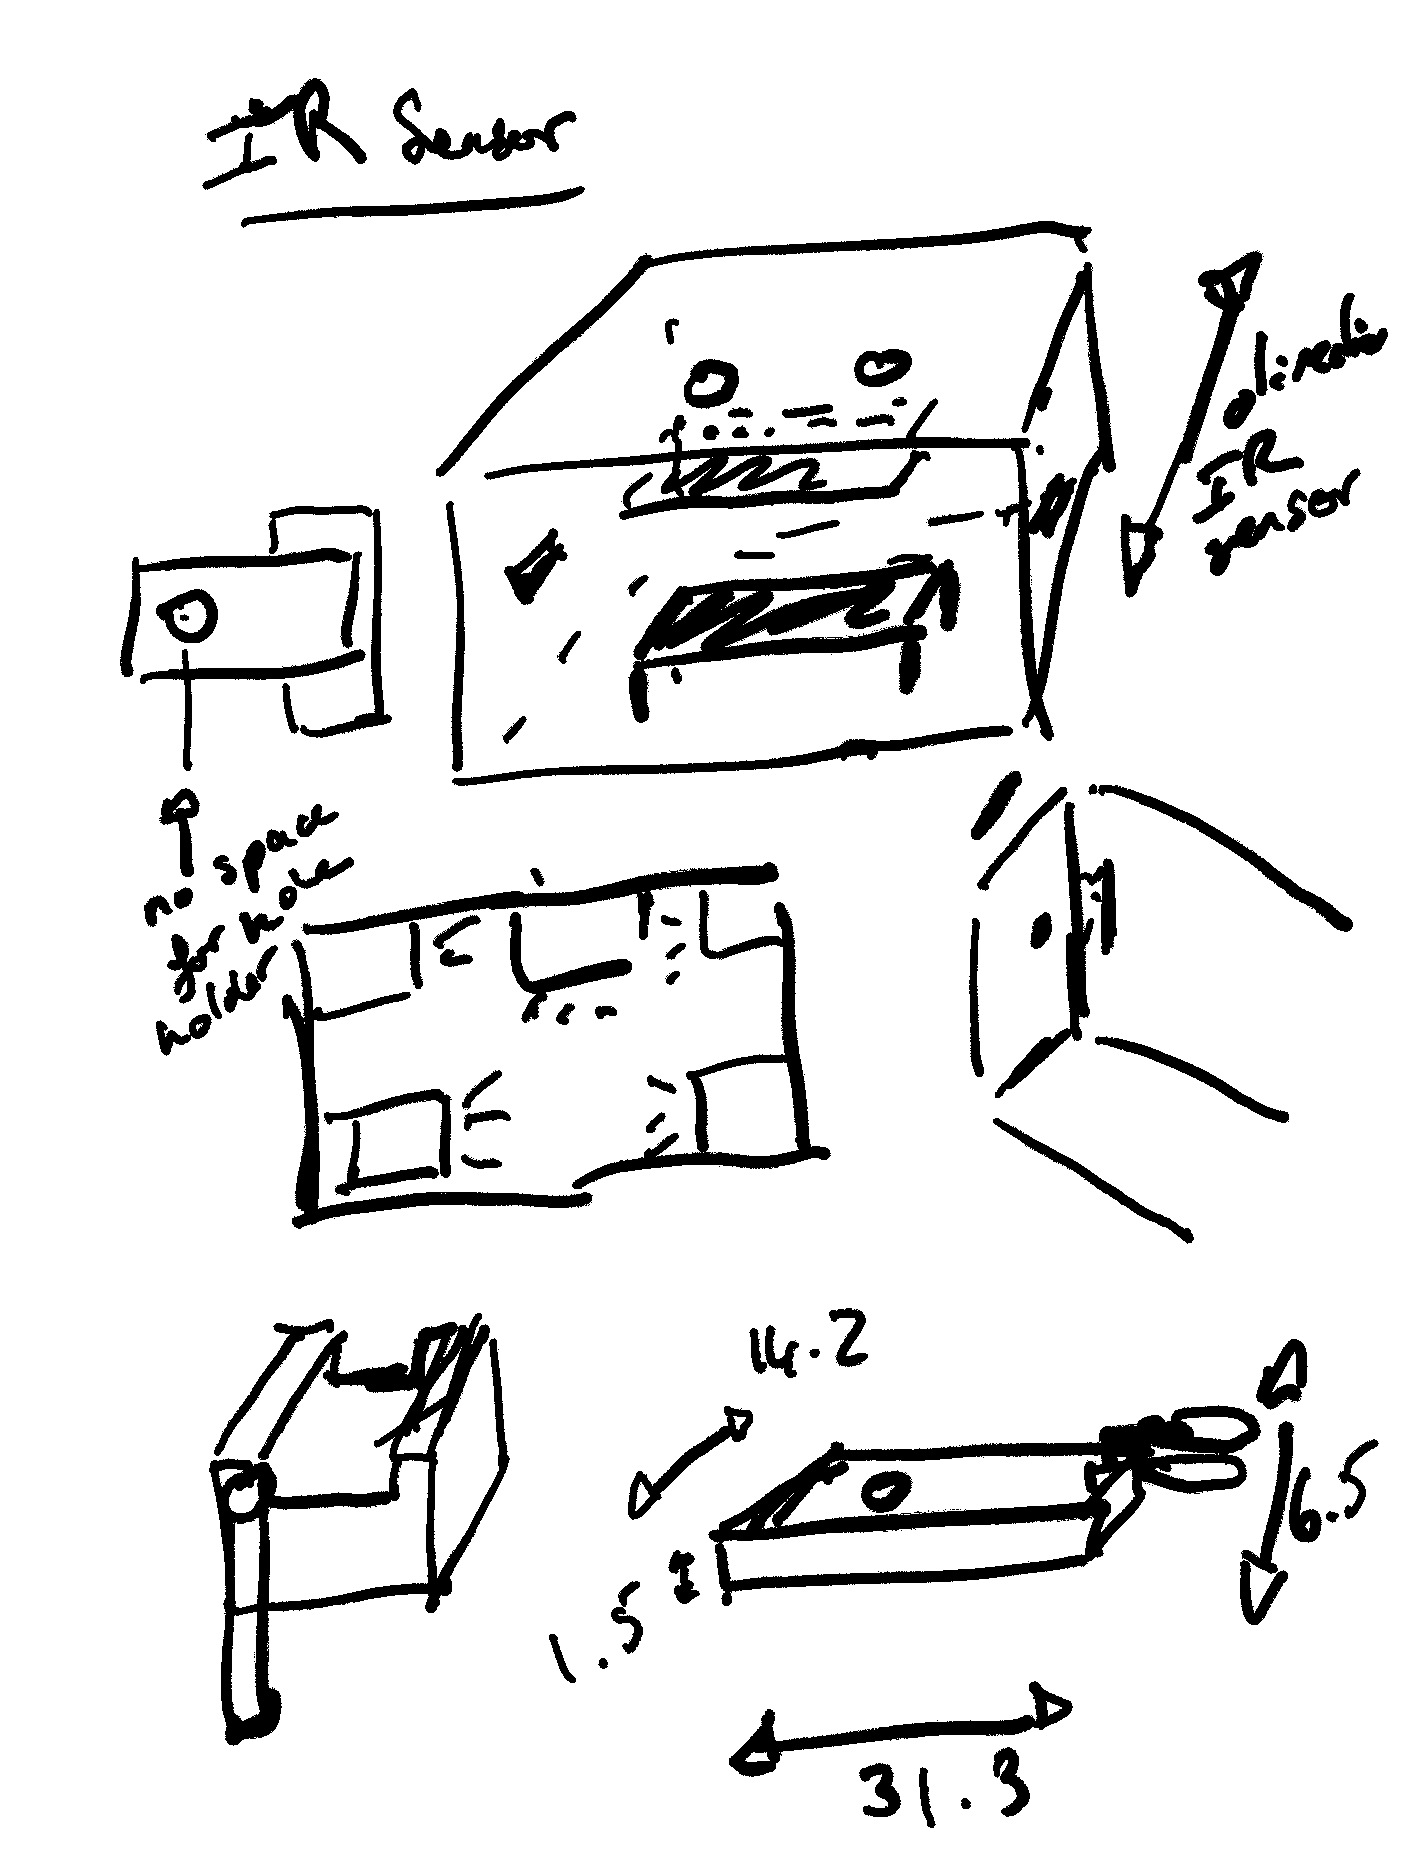 IR Sensor
direction
IR
sensor
no space
for hole
holder
14.2
6.5
1.5
31.3